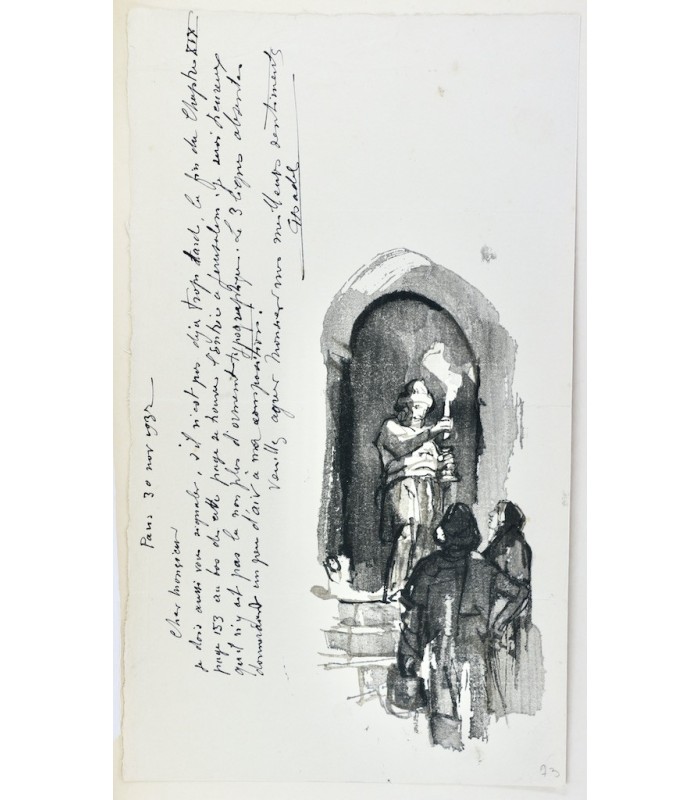 Paris 30 nov 1932
Cher Monsieur
je dois aussi vous signaler, s'il n'est pas déjà trop tard, la fin du Chapitre XIX
page 153 au bas de cette page se trouve l'entrée à Jerusalem. je serai heureux
qu'il n'y ait pas là non plus d'ornement typographique. Les 3 lignes absentes
donneront un peu d'air à ma composition.
Veuillez agréer Monsieur mes meilleurs sentiments
93